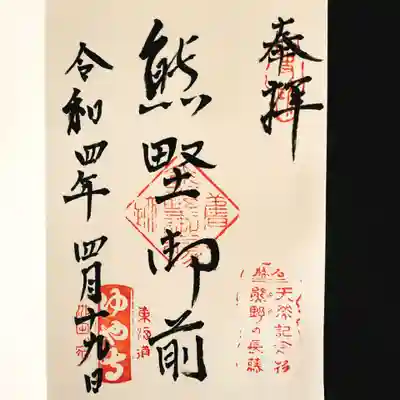 奉拝
熊野御前
令和四年 四月十九日
天然記念物
熊野の長藤
東海道
ゆや寺
池田宿